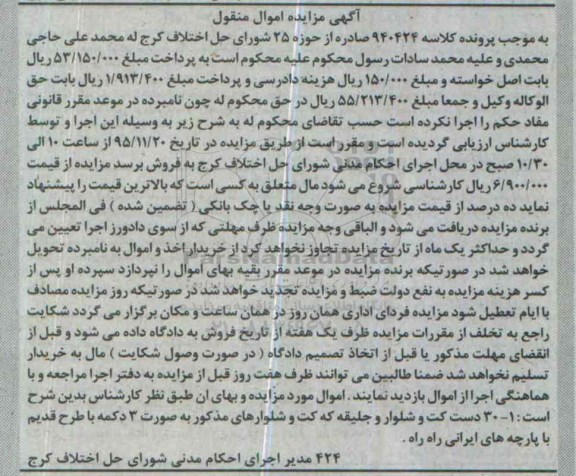 آگهی مزایده اموال منقول
به موجب پرونده کلاسه ۹۴۰۴۲۴ صادره از حوزه ۲۵ شورای حل اختلاف کرج له محمد علی حاجی
محمدی و علیه محمد سادات رسول محکوم علیه محکوم است به پرداخت مبلغ ۵۳/۱۵۰/۰۰۰ ریال
بابت اصل خواسته و مبلغ ۱۵۰/۰۰۰ ریال هزینه دادرسی و پرداخت مبلغ ۱/۹۱۳/۴۰۰ ریال بابت حق
الوکاله وکیل و جمعا مبلغ ۵۵/۲۱۳/۴۰۰ ریال در حق محکوم له چون نامبرده در موعد مقرر قانونی
مفاد حکم را اجرا نکرده است حسب تقاضای محکوم له به شرح زیر به وسیله این اجرا و توسط
کارشناس ارزیابی گردیده است و مقرر است از طریق مزایده در تاریخ ۹۵/۱۱/۲۰ از ساعت ۱۰ الی
۱۰/۳۰ صبح در محل اجرای احکام مدنی شورای حل اختلاف کرج به فروش برسد مزایده از قیمت
۶/۹۰۰/۰۰۰ ریال کارشناسی شروع می شود مال متعلق به کسی است که بالاترین قیمت را پیشنهاد
نماید ده درصد از قیمت مزایده به صورت وجه نقد یا چک بانکی ( تضمین شده ) فی المجلس از
برنده مزایده دریافت می شود و الباقی وجه مزایده ظرف مهلتی که از سوی دادورز اجرا تعیین می
گردد و حداکثر یک ماه از تاریخ مزایده تجاوز نخواهد کرد از خریدار اخذ و اموال به نامبرده تحویل
خواهد شد در صورتیکه برنده مزایده در موعد مقرر بقیه بهای اموال را نپردازد سپرده او پس از
کسر هزینه مزایده به نفع دولت ضبط و مزایده تجدید خواهد شد در صورتیکه روز مزایده مصادف
با ایام تعطیل شود مزایده فردای اداری همان روز در همان ساعت و مکان برگزار می گردد شکایت
راجع به تخلف از مقررات مزایده ظرف یک هفته از تاریخ فروش به دادگاه داده می شود و قبل از
انقضای مهلت مذکور یا قبل از اتخاذ تصمیم دادگاه ( در صورت وصول شکایت ) مال به خریدار
تسلیم نخواهد شد ضمنا طالبین می توانند ظرف هفت روز قبل از مزایده به دفتر اجرا مراجعه و با
هماهنگی اجرا از اموال بازدید نمایند . اموال مورد مزایده و بهای ان طبق نظر کارشناس بدین شرح
است : ۱-۳۰ دست کت و شلوار و جلیقه که کت و شلوارهای مذکور به صورت ۳ دکمه با طرح قدیم
با پارچه های ایرانی راه راه .
۴۲۴ مدیر اجرای احکام مدنی شورای حل اختلاف کرج
ParsNamadData